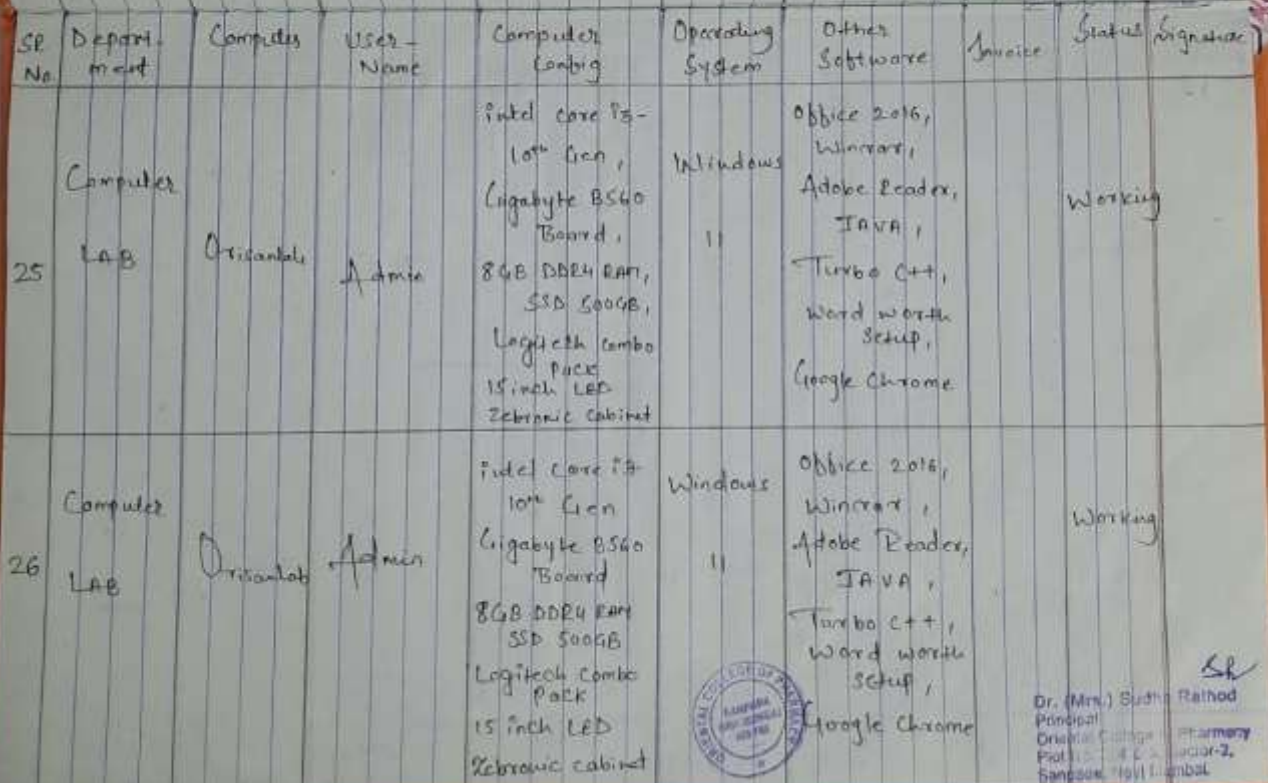 SR No. Depart-ment Computer User-Name Computer Config Operating System Other Software Invoice Status Signature
25
Computer
LAB
Admin
intel core i3-
10th Gen,
Gigabyte B560
Board,
8GB DDR4 RAM,
SSD 500GB,
Logitech combo
Pack
15 inch LED
Zebronic cabinet
Windows
11
Office 2016,
Winrar,
Adobe Reader,
JAVA,
Turbo C++,
Word worth
Setup,
Google Chrome
Working
26
Computer
LAB
Orisanlab
Admin
intel core i3-
10th Gen
Gigabyte B560
Board
8GB DDR4 RAM
SSD 500GB
Logitech Combo
Pack
15 inch LED
Zebronic cabinet
Windows
11
Office 2016,
Winrar,
Adobe Reader,
JAVA,
Turbo C++,
Word worth
setup,
Google Chrome
Working
ORIENTAL COLLEGE OF PHARMACY
SANPADA
NAVI MUMBAI
Dr. (Mrs.) Sudha Rathod
Principal
Oriental College of Pharmacy
Sector-2,
Sanpada, Navi Mumbai